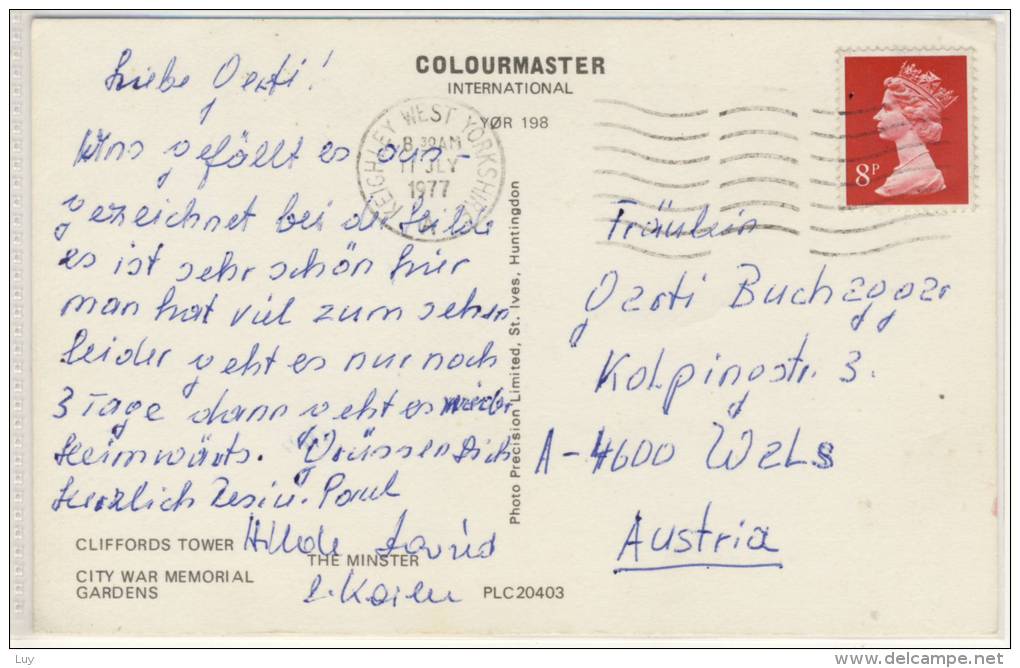 Liebe Gerti!
Uns gefällt es aus-
gezeichnet bei d. Hilde
es ist sehr schön hier
man hat viel zum sehen
leider geht es nur noch
3 Tage dann geht es wieder
Heimwärts. Grüssen Dich
Herzlich Resi u. Paul
Hilde
COLOURMASTER
INTERNATIONAL
YØR 198
KEIGHLEY WEST YORKSHIRE
8.30AM
11 JLY
1977
8P
Fräulein
Gerti Buchegger
Kolpingstr. 3.
A-4600 WELS
Austria
Photo Precision Limited, St. Ives, Huntingdon
CLIFFORDS TOWER
THE MINSTER
CITY WAR MEMORIAL
GARDENS
PLC20403
Luy
delcampe.net